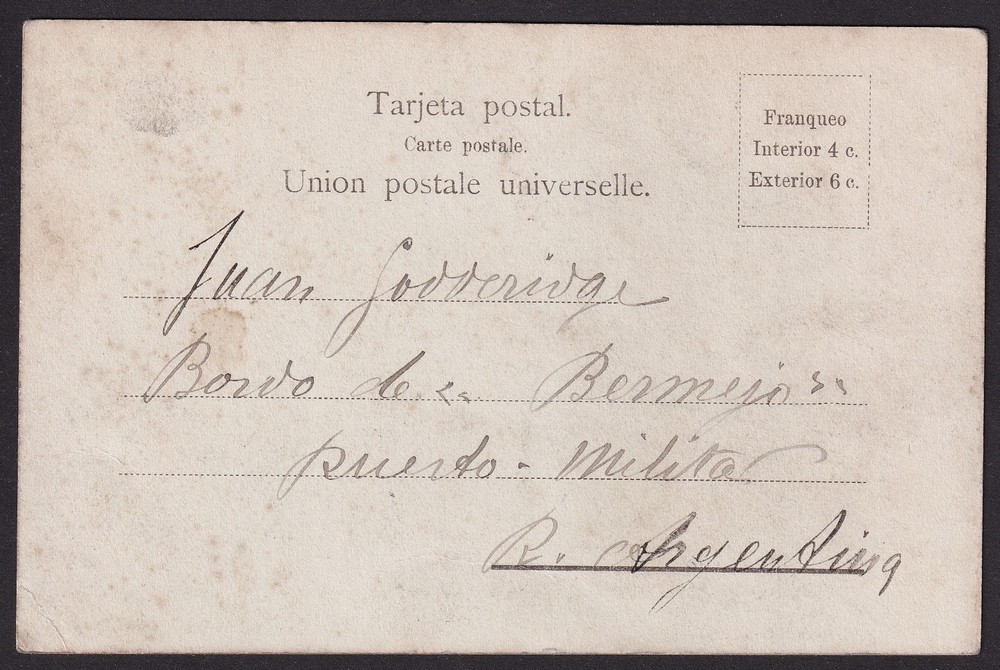 Tarjeta postal.
Carte postale.
Union postale universelle.
Franqueo
Interior 4 c.
Exterior 6 c.
Juan Godderidge
Bordo de « Bermejo »
puerto - Militar
R. Argentina